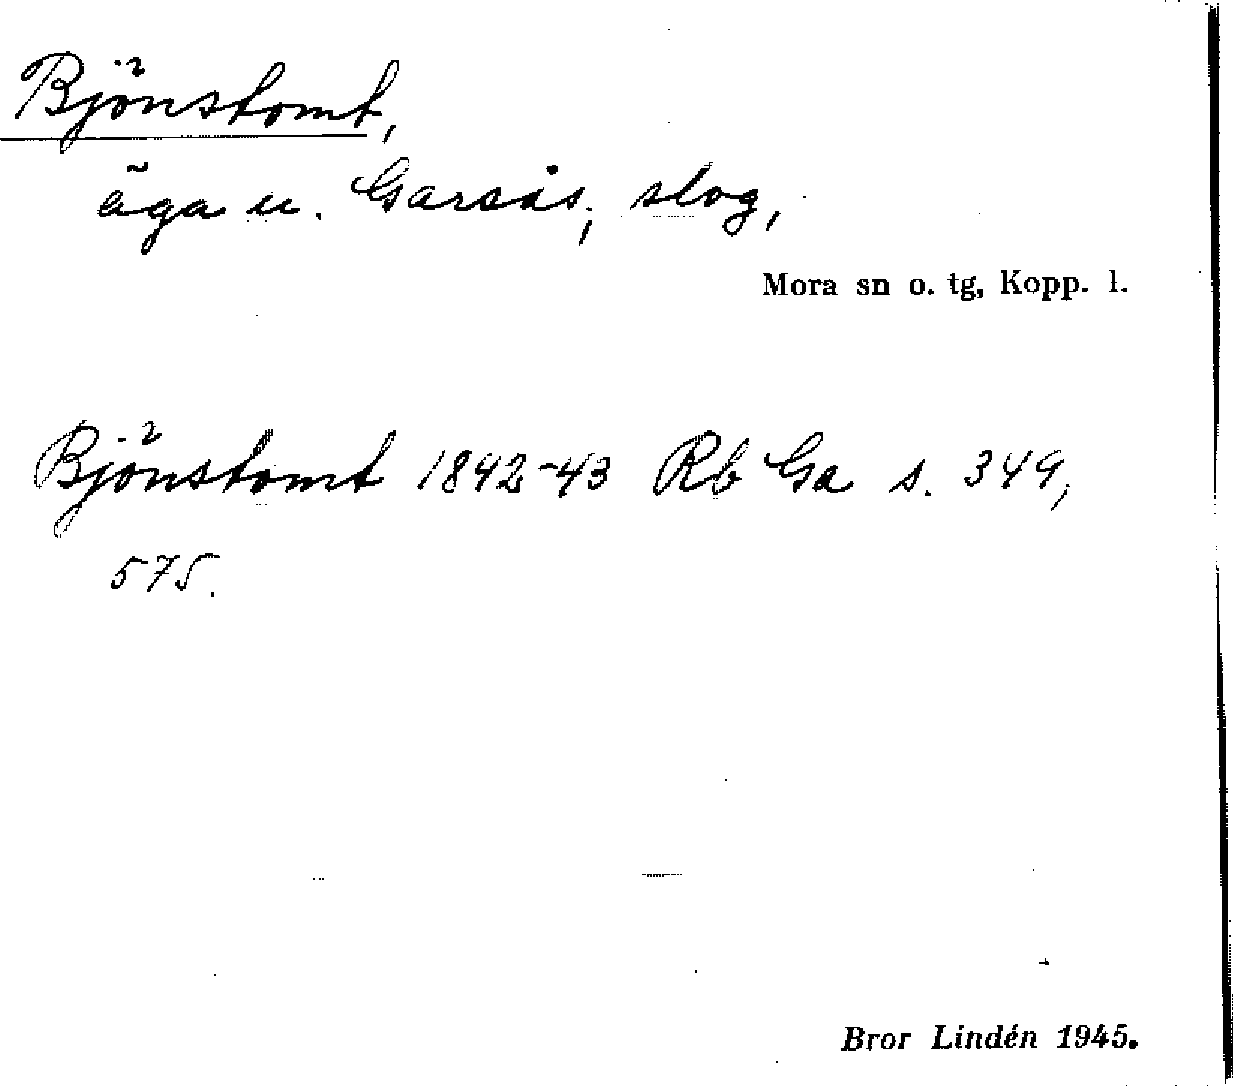 Björnstomt,
äga u. Garsås, slog,
Mora sn o. tg, Kopp. l.
Björnstomt 1842-43 Rb Ga s. 349,
575.
Bror Lindén 1945.